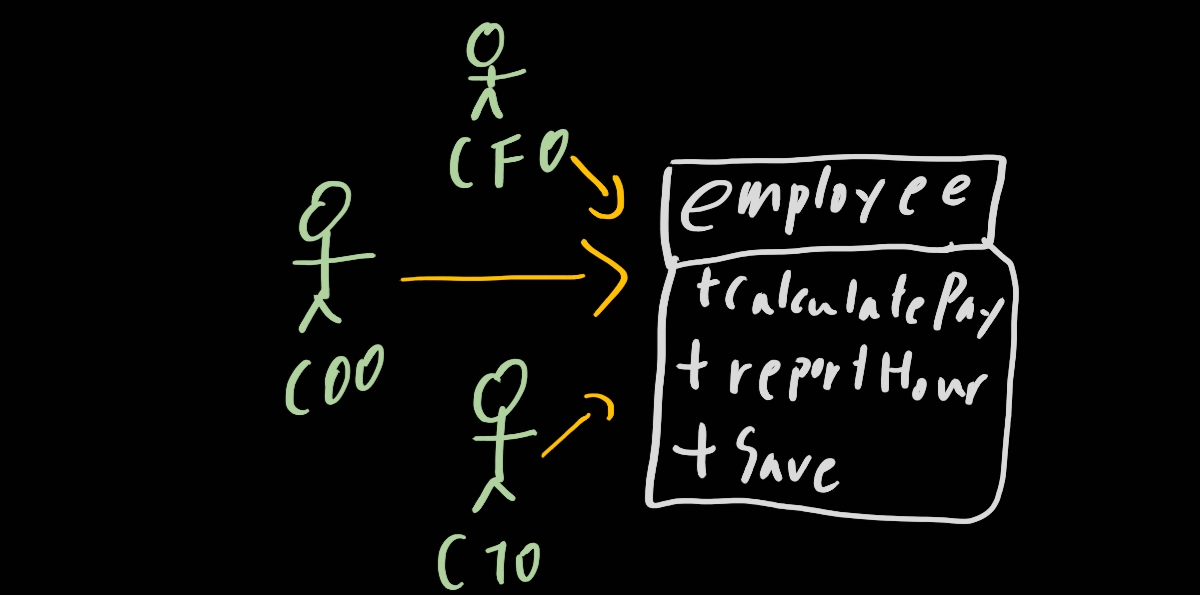 CFO
COO
CTO
employee
+CalculatePay
+reportHour
+Save